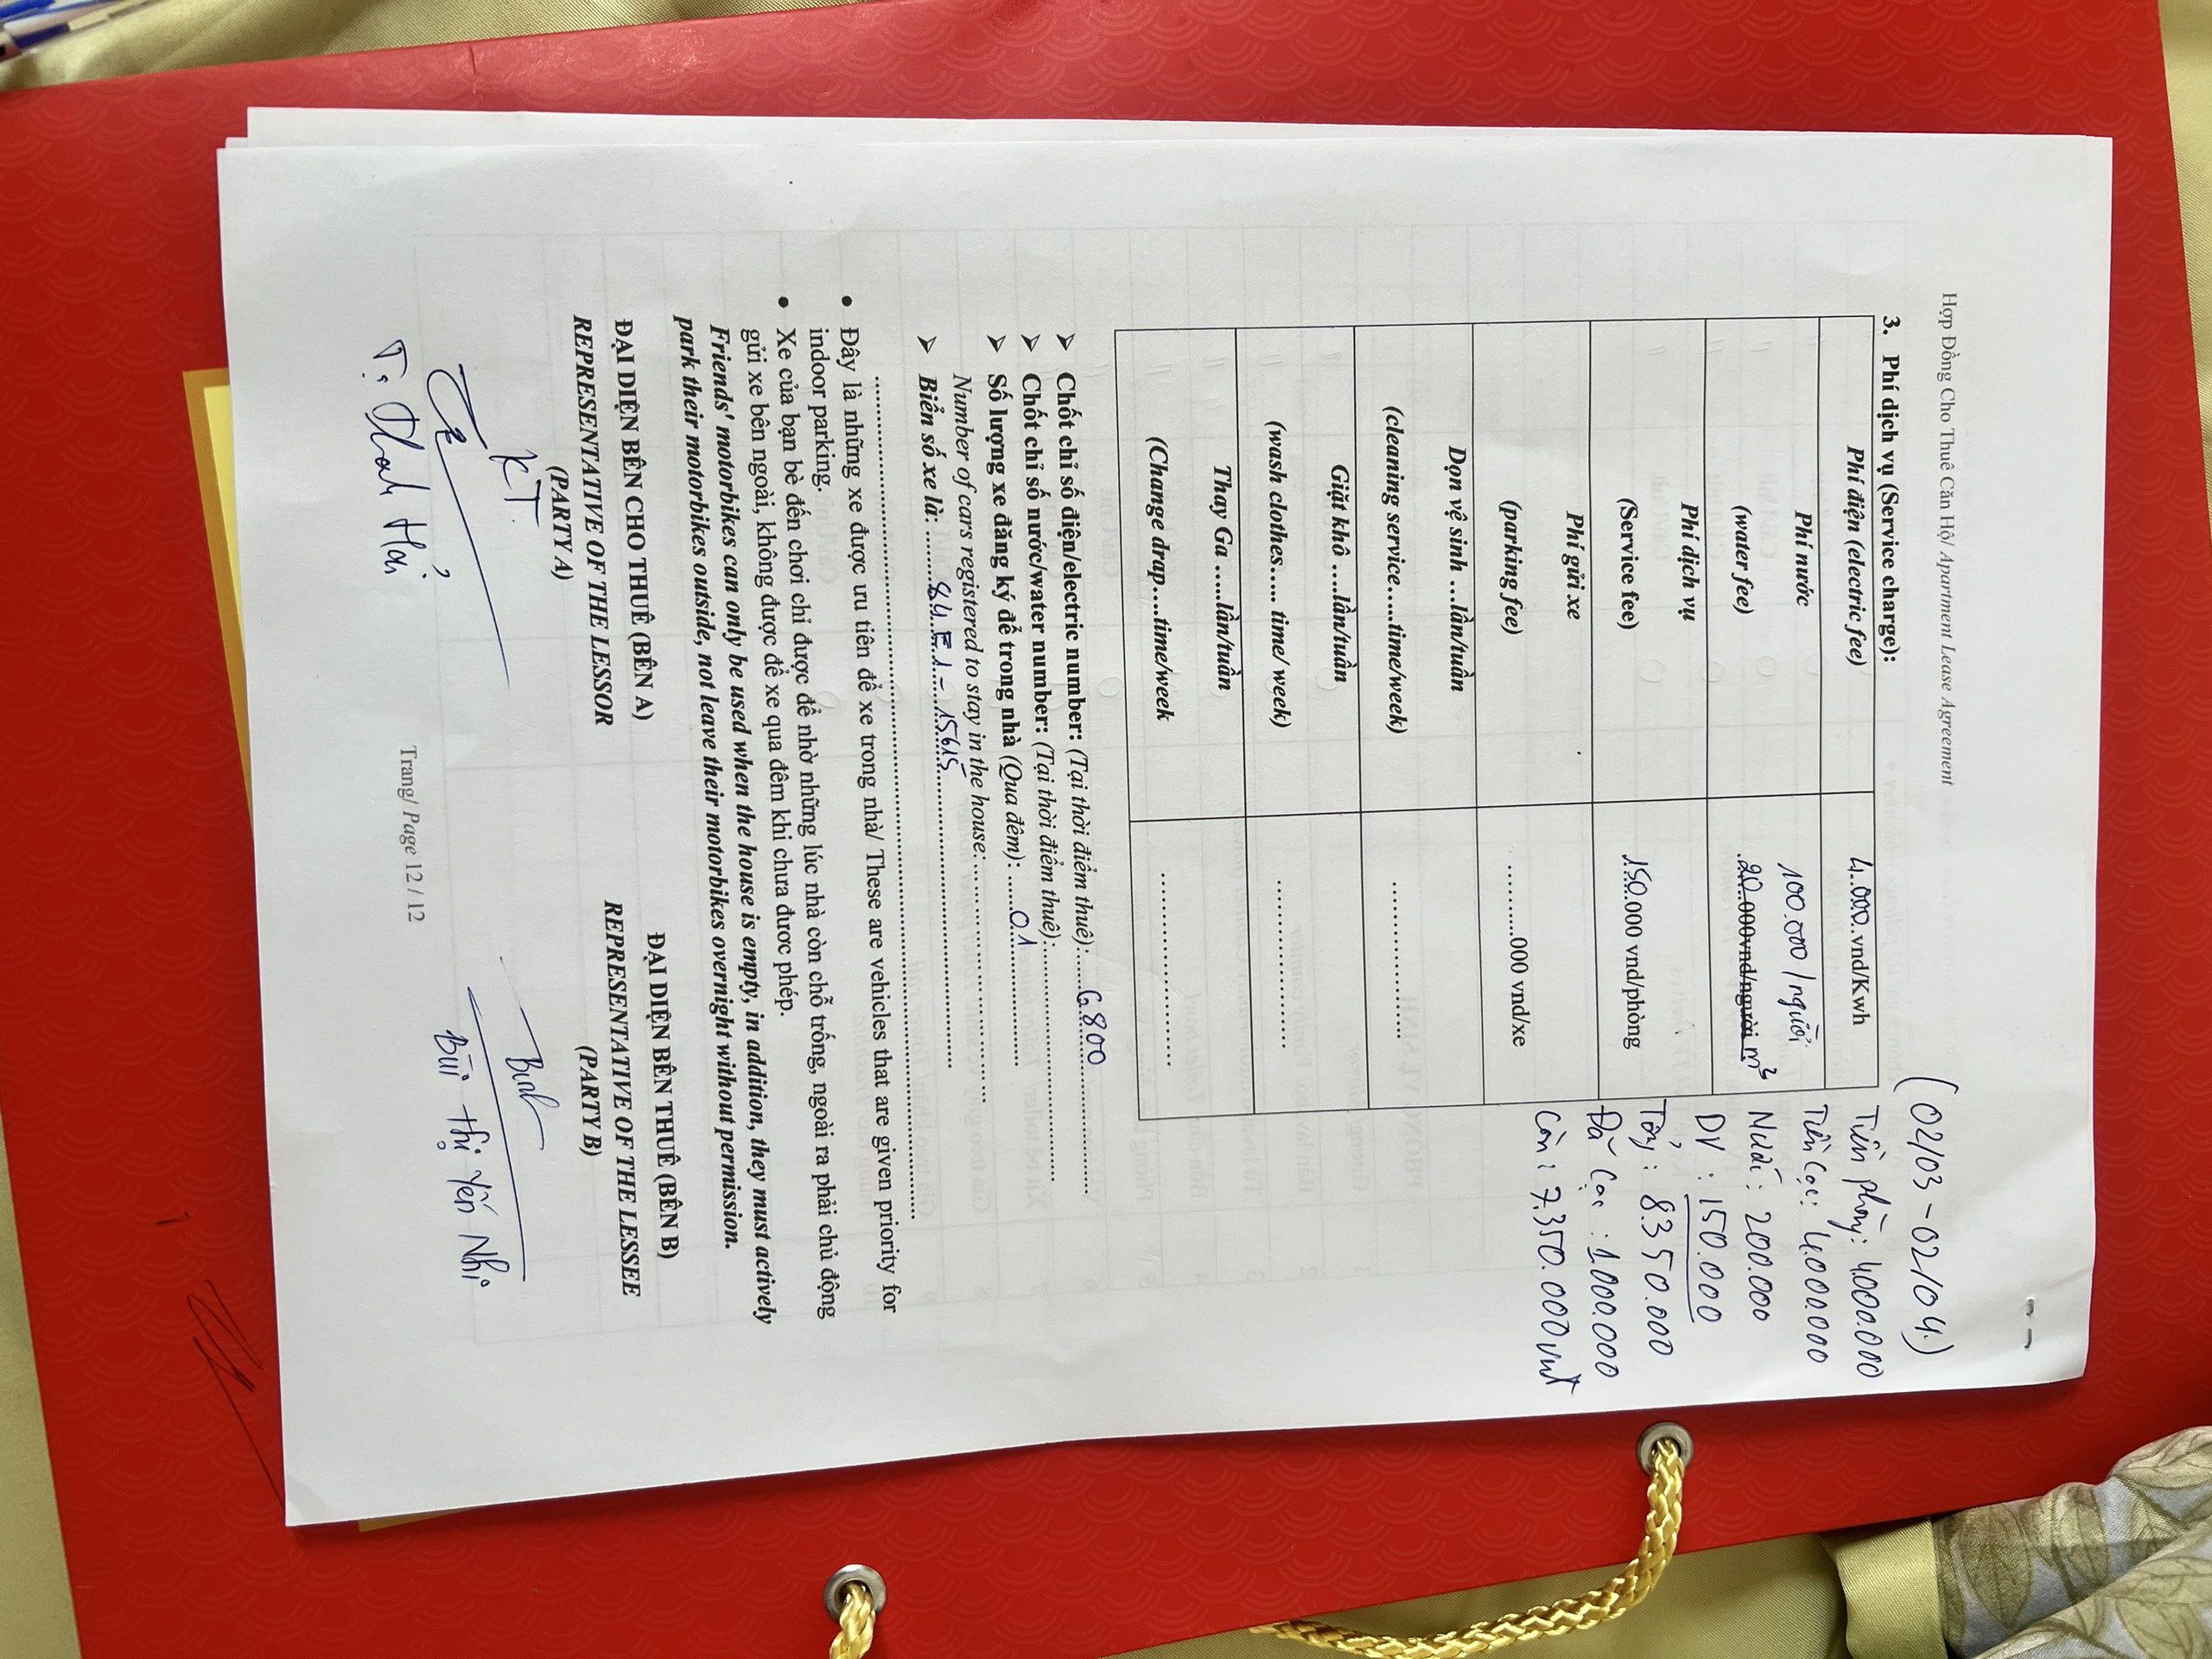 Hợp Đồng Cho Thuê Căn Hộ/ Apartment Lease Agreement
(02/03 - 02/04)
3. Phí dịch vụ (Service charge):
Phí điện (electric fee) 4.000 vnd/Kwh
Phí nước 100.000/người
(water fee) 20.000vnd/người m³
Phí dịch vụ
(Service fee) 150.000 vnd/phòng
Phí gửi xe
(parking fee) ..........000 vnd/xe
Dọn vệ sinh ...lần/tuần
(cleaning service.....time/week) ........................
Giặt khô ....lần/tuần
(wash clothes..... time/ week) ........................
Thay Ga .....lần/tuần
(Change drap....time/week ........................
Tiền phòng: 4.000.000
Tiền cọc: 4.000.000
Nước: 200.000
DV: 150.000
Tổng: 8.350.000
Đã cọc: 1.000.000
Còn: 7.350.000 vnđ
➢ Chốt chỉ số điện/electric number: (Tại thời điểm thuê):......6800..................
➢ Chốt chỉ số nước/water number: (Tại thời điểm thuê):....................................
➢ Số lượng xe đăng ký để trong nhà (Qua đêm): ......01....................
Number of cars registered to stay in the house: ..............................
➢ Biển số xe là: .........84E1-15615..................................................
........................................................................................................................
• Đây là những xe được ưu tiên để xe trong nhà/ These are vehicles that are given priority for
indoor parking.
• Xe của bạn bè đến chơi chỉ được để nhờ những lúc nhà còn chỗ trống, ngoài ra phải chủ động
gửi xe bên ngoài, không được để xe qua đêm khi chưa được phép.
Friends' motorbikes can only be used when the house is empty, in addition, they must actively
park their motorbikes outside, not leave their motorbikes overnight without permission.
ĐẠI DIỆN BÊN CHO THUÊ (BÊN A)
REPRESENTATIVE OF THE LESSOR
(PARTY A)
KT
ĐẠI DIỆN BÊN THUÊ (BÊN B)
REPRESENTATIVE OF THE LESSEE
(PARTY B)
Bùi Thị Yến Nhi
Trang/ Page 12 / 12